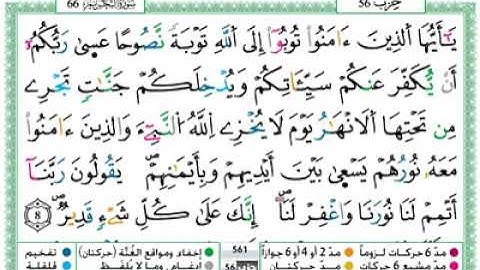 66 سُورَةُ التَّحْرِيمِ حزب 56
يَٰٓأَيُّهَا ٱلَّذِينَ ءَامَنُوا۟ تُوبُوٓا۟ إِلَى ٱللَّهِ تَوْبَةً نَّصُوحًا عَسَىٰ رَبُّكُمْ
أَن يُكَفِّرَ عَنكُمْ سَيِّـَٔاتِكُمْ وَيُدْخِلَكُمْ جَنَّٰتٍ تَجْرِى
مِن تَحْتِهَا ٱلْأَنْهَٰرُ يَوْمَ لَا يُخْزِى ٱللَّهُ ٱلنَّبِىَّ وَٱلَّذِينَ ءَامَنُوا۟
مَعَهُۥ نُورُهُمْ يَسْعَىٰ بَيْنَ أَيْدِيهِمْ وَبِأَيْمَٰنِهِمْ يَقُولُونَ رَبَّنَآ
أَتْمِمْ لَنَا نُورَنَا وَٱغْفِرْ لَنَآ إِنَّكَ عَلَىٰ كُلِّ شَىْءٍ قَدِيرٌ 8
مدّ 6 حركات لزوماً مدّ 2 أو 4 أو 6 جوازاً 561 إخفاء، ومواقع الغُنَّة (حركتان) تفخيم
مدّ مشبع 6 حركات مدّ حركتان 56 إدغام، وما لا يُلفظ قلقلة